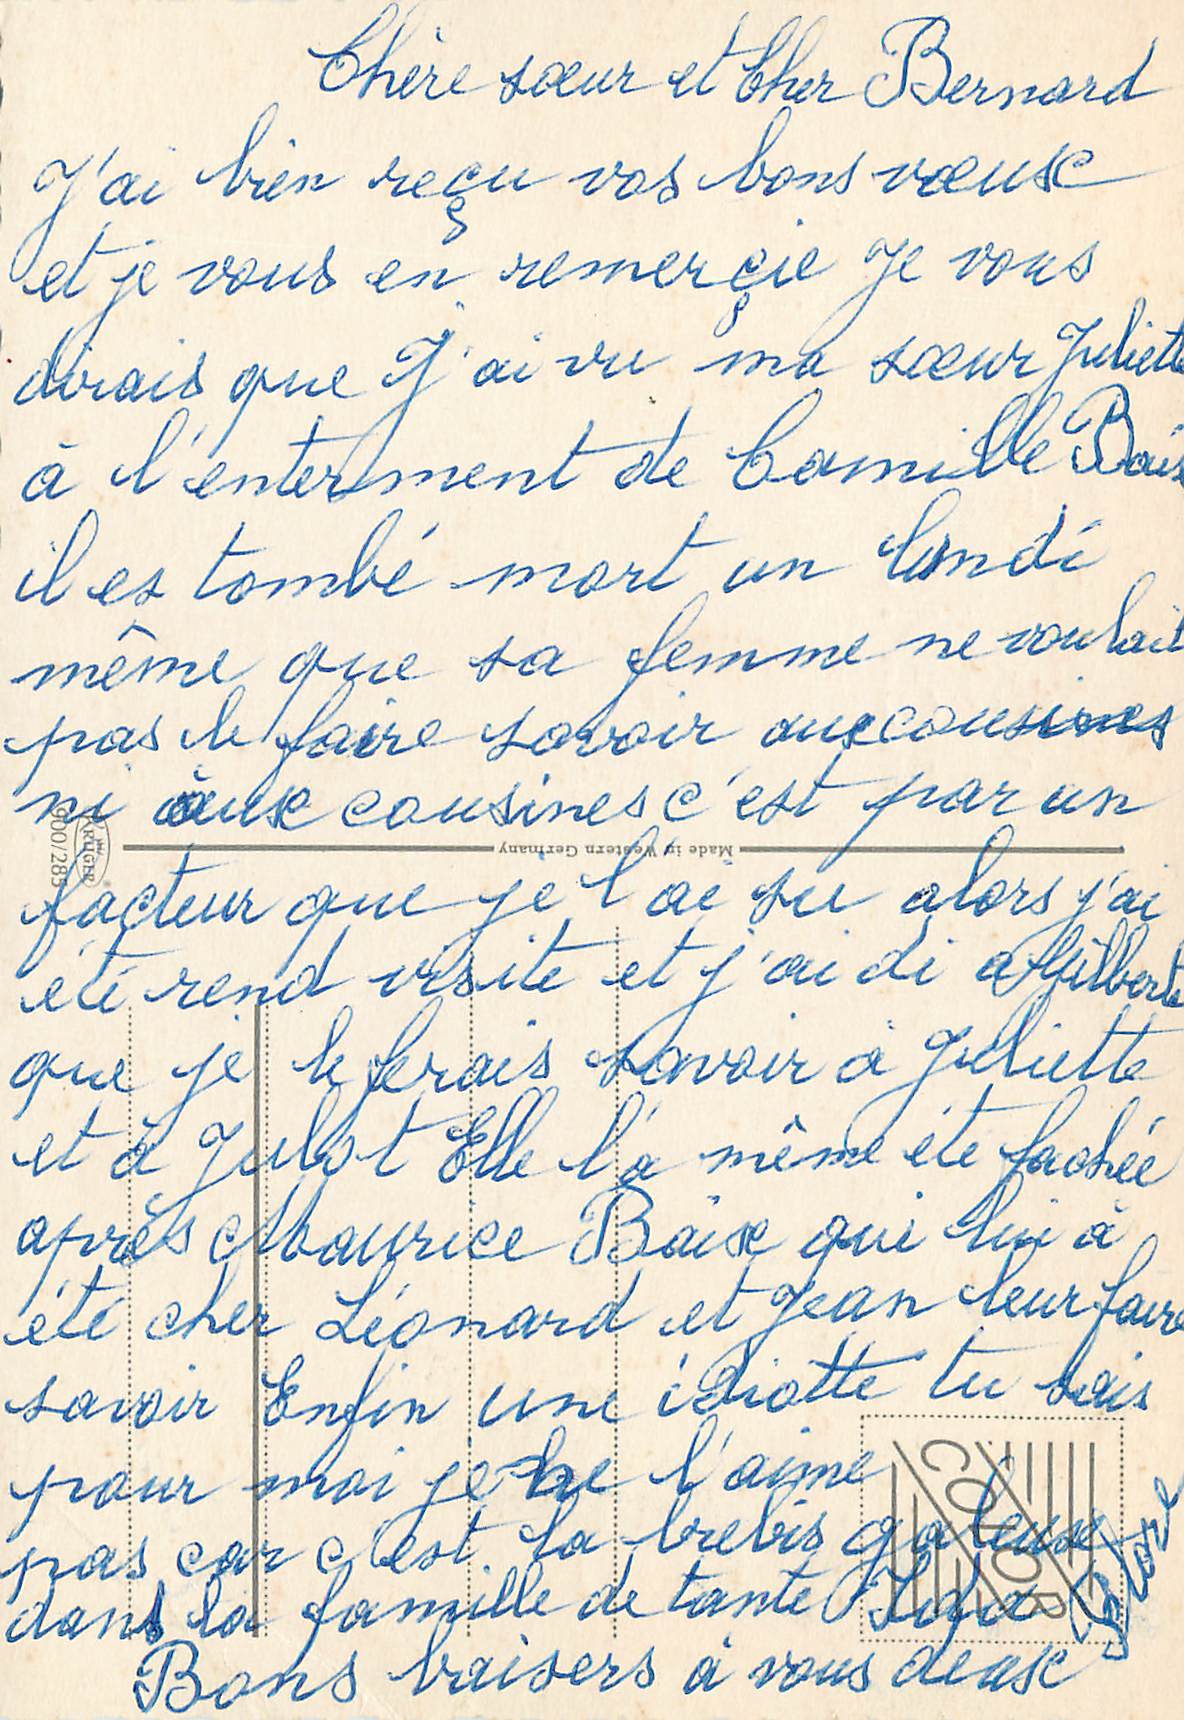 Chère sœur et Cher Bernard
J'ai bien reçu vos bons vœux
et je vous en remerçie Je vous
dirais que J'ai vu ma sœur Juliette
à l'enterment de Camille Baix
il es tombé mort un lundi
même que sa femme ne voulait
pas le faire savoir aux cousines
ni àux cousines c'est par un
facteur que je l'ai su alors j'ai
été rend visite et j'ai di a Gilberte
que je le ferais savoir à Juliette
et à Elle l'a même été fachée
après Maurice Baix qui lui à
été cher Léonard et Jean leur faire
savoir Enfin une idiotte tu sais
pour moi je ne l'aime
pas car c'est la brebis galeuse
dans la famille de tante
Bons baisers à vous deux
Made in Western Germany
KRÜGER
900/285
COLOR